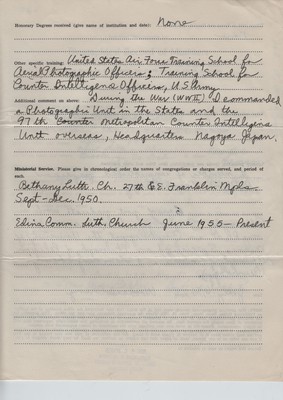 Honorary Degrees received (give name of institution and date): None
Other specific training: United States Air Force Training School for
Aerial Photographic Officers; Training School for
Counter Intelligence Officers, U.S. Army
Additional comment on above: During the War (WWII) I commanded
a Photographic Unit in the States and the
97th Counter Metropolitan Counter Intelligence
Unit overseas, Headquarters Nagoya Japan.
Ministerial Service. Please give in chronological order the names of congregations or charges served, and period of
each.
Bethany Luth. Ch. 27th & E. Franklin Mpls.
Sept - Dec. 1950.
Edina Comm. Luth. Church June 1955 - Present